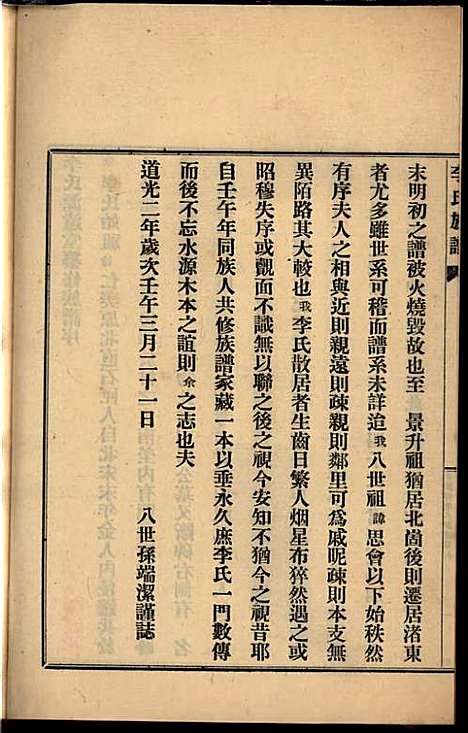 李氏族譜
末明初之譜被火燒毀故也至 景升祖猶居北崗後則遷居渚東
者尤多雖世系可稽而譜系未詳迨我八世祖諱思會以下始秩然
有序夫人之相與近則親遠則疎親則鄰里可爲戚呢疎則本支無
異陌路其大較也我李氏散居者生齒日繁人烟星布猝然遇之或
昭穆失序或覿面不識無以聯之視今安知不猶今之視昔耶
自壬午年同族人共修族譜家藏一本以垂永久庶李氏一門數傳
而後不忘水源木本之誼則余之志也夫
道光二年歲次壬午三月二十一日 八世孫端潔謹誌